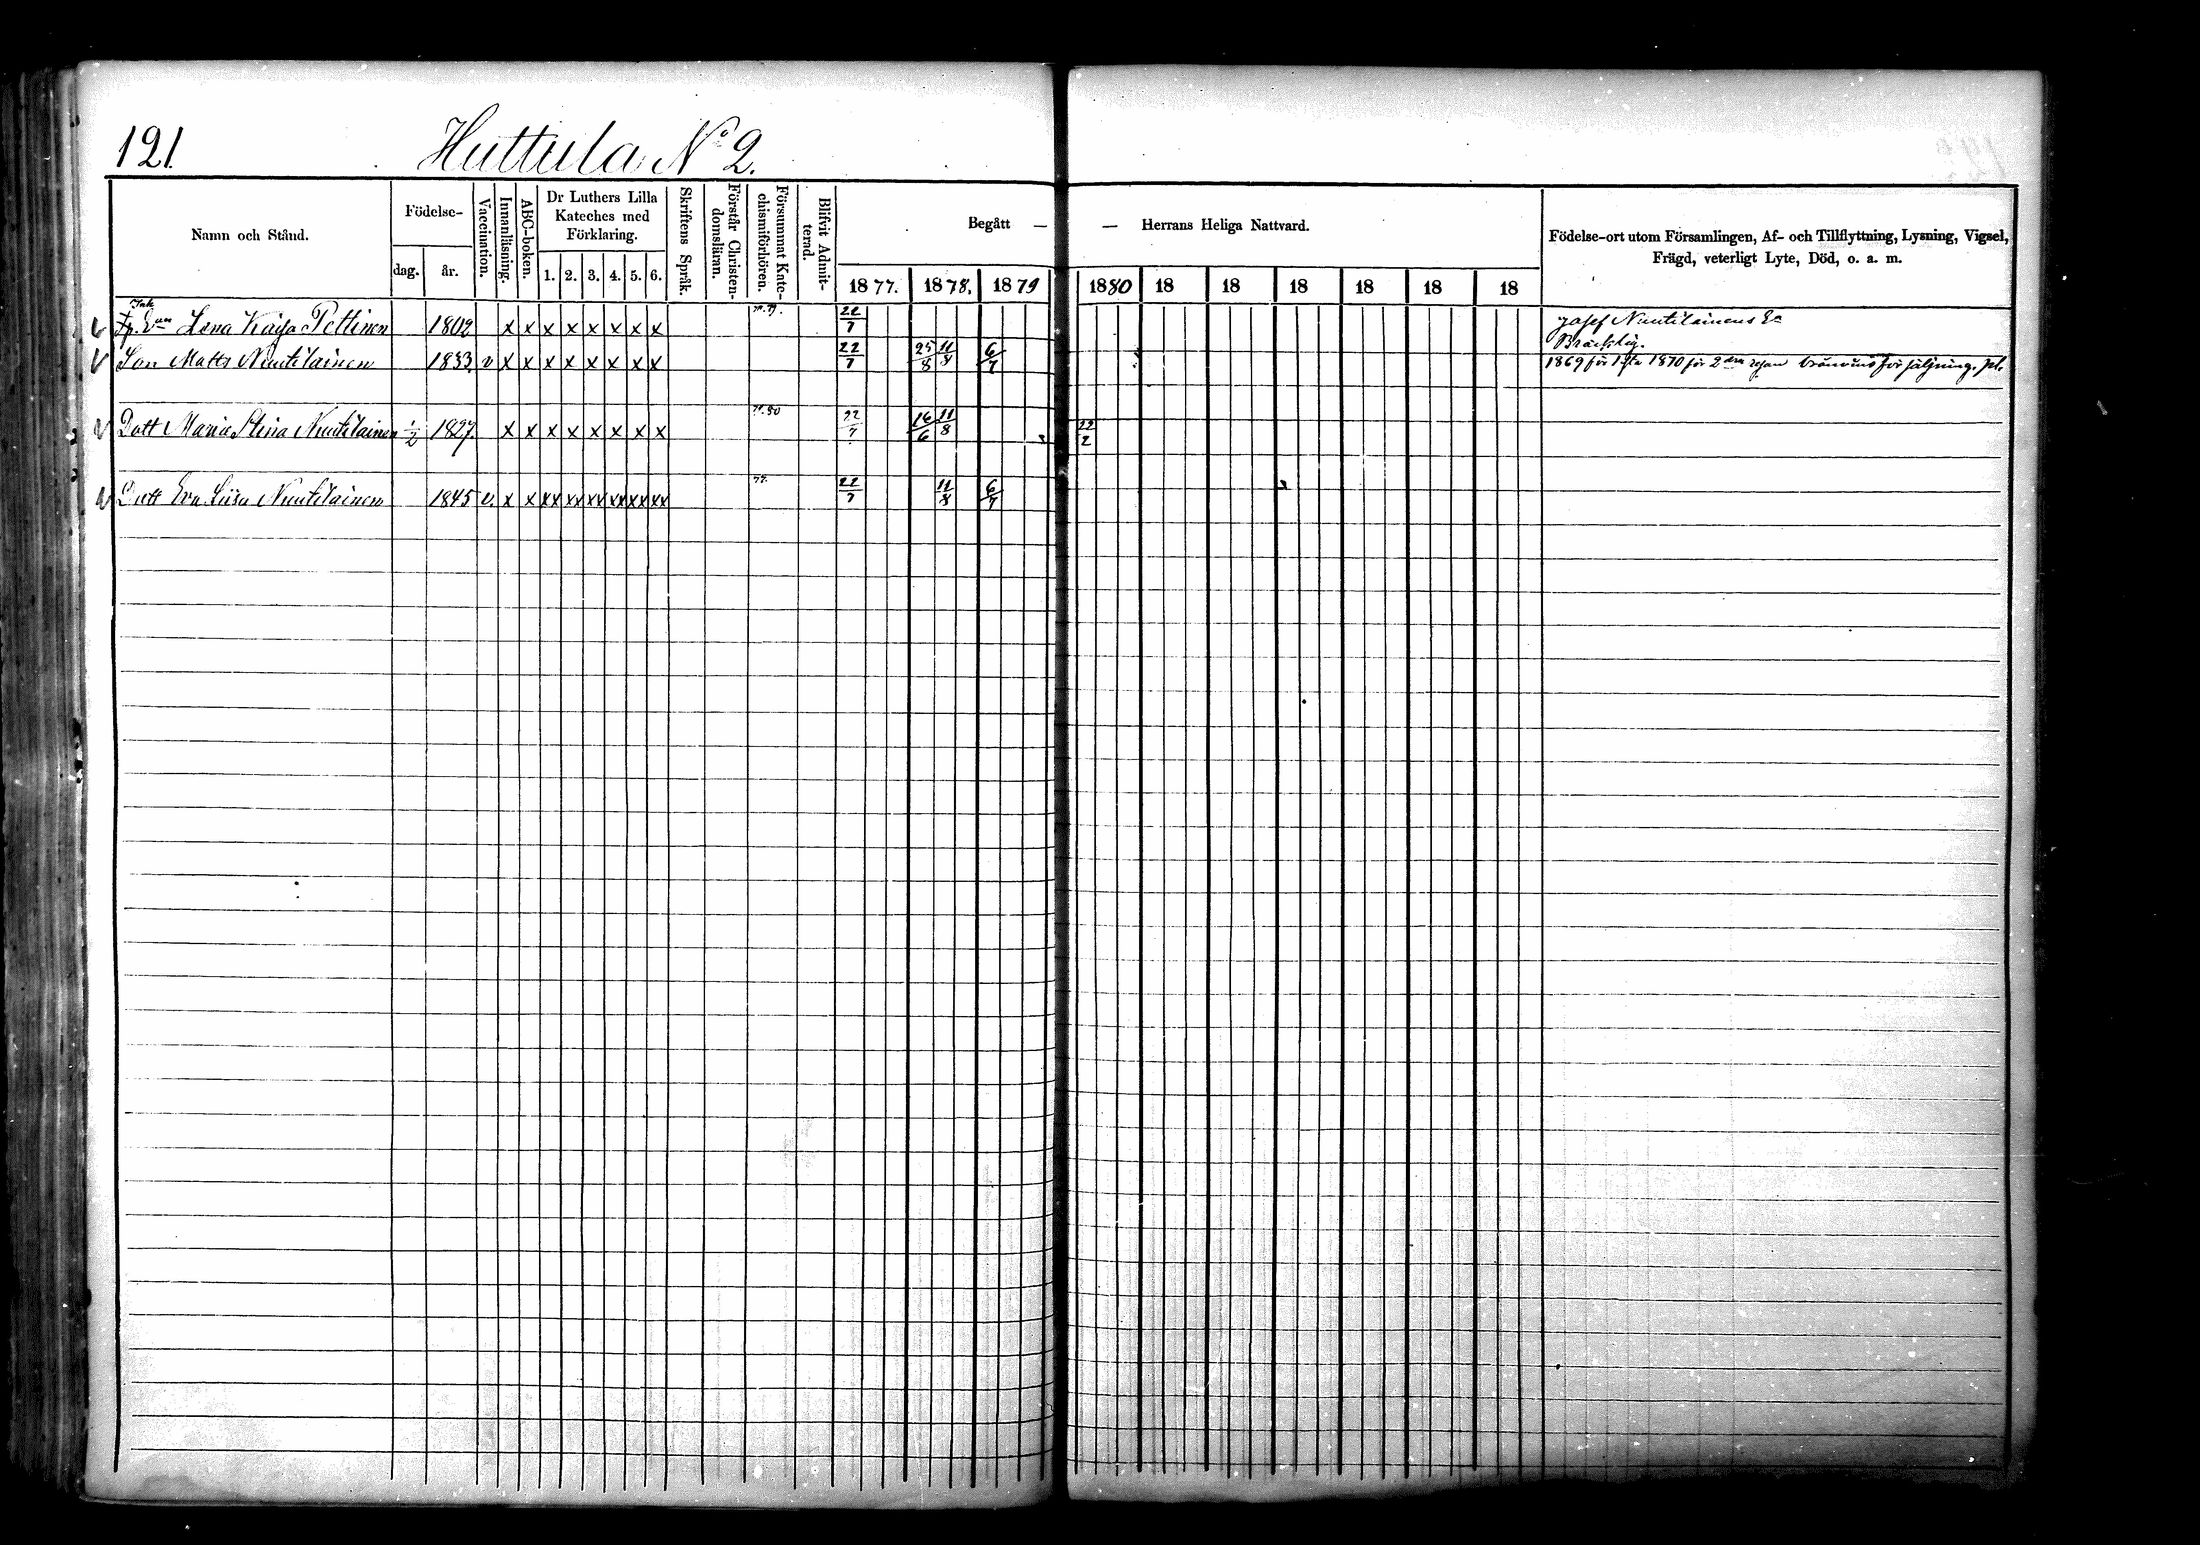 121.
Huttula No 2.
Namn och Stånd.
Födelse-
dag.
år.
Vaccination.
Innanläsning.
ABC-boken.
Dr Luthers Lilla
Kateches med
Förklaring.
1. 2. 3. 4. 5. 6.
Skriftens Språk.
Förstår Christen-
domsläran.
Försummat Kate-
chismiförhören.
Blifvit Admit-
terad.
Begått —
— Herrans Heliga Nattvard.
1877. 1878. 1879 1880 18 18 18 18 18 18
Födelse-ort utom Församlingen, Af- och Tillflyttning, Lysning, Vigsel,
Frägd, veterligt Lyte, Död, o. a. m.
Lena Kaisa Pettinen 1802 x x x x x x x x 22/7 Josef Nuutilainens
Bräcklig.
Son Matts Nuutilainen 1833. v x x x x x x x x 22/7 25/8 11/8 6/7 1869 för 1sta 1870 för 2dra
Dott Maria Stina Nuutilainen 1/2 1827. x x x x x x x x 22/7 16/6 11/8 22/2
Dott Eva Liisa Nuutilainen 1845 v. x x xx xx xx xx xx xx 77. 22/7 11/8 6/7